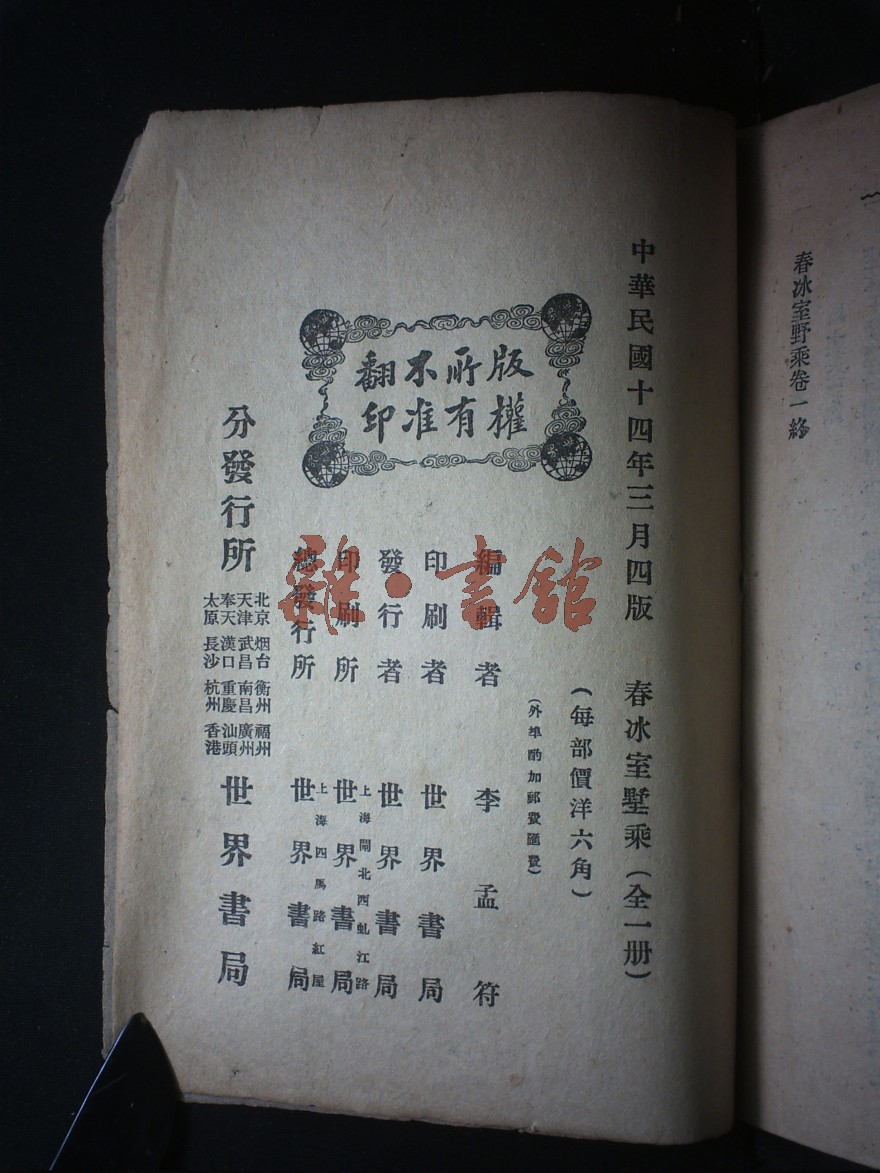 春冰室野乘卷一終
中華民國十四年三月四版
春冰室墅乘（全一册）
（每部價洋六角）
（外埠酌加郵費匯費）
版權
所有
不准
翻印
編輯者 李孟符
印刷者 世界書局
發行者 世界書局
印刷所 上海閘北西虬江路 世界書局
總發行所 上海四馬路紅屋 世界書局
分發行所
北京 烟台 衡州 福州
天津 武昌 南昌 廣州
奉天 漢口 重慶 汕頭
太原 長沙 杭州 香港
世界書局
雜·書館